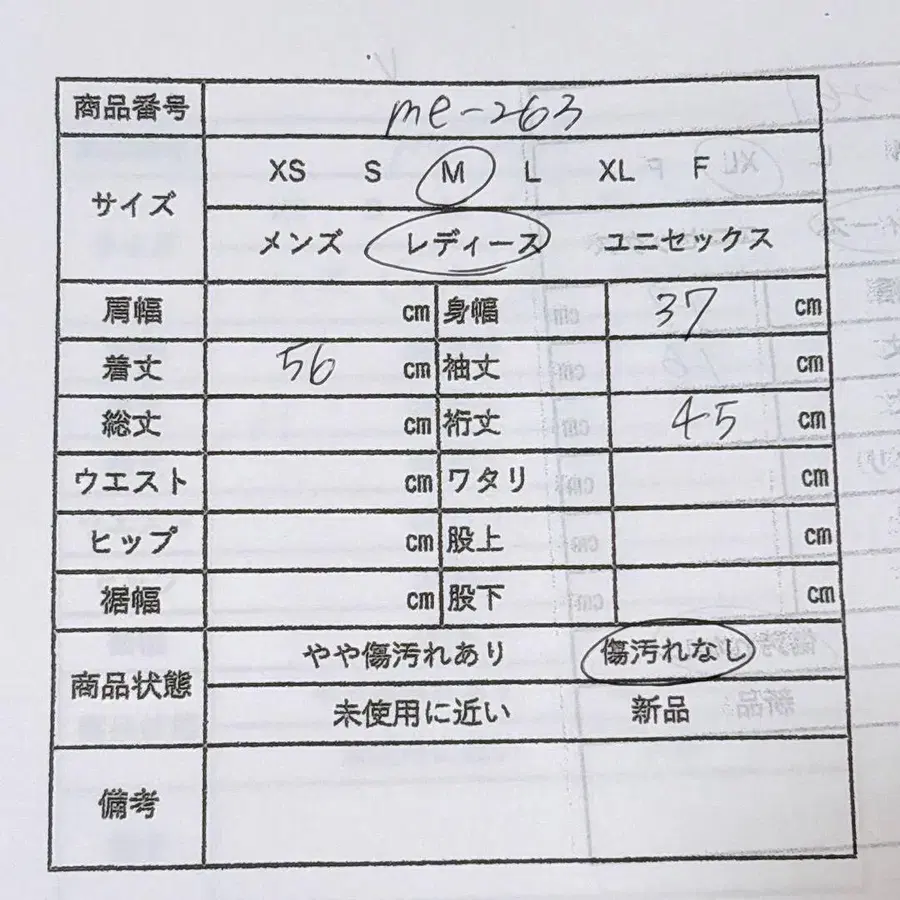 商品番号 me-263
サイズ XS S M L XL F
メンズ レディース ユニセックス
肩幅 cm 身幅 37 cm
着丈 56 cm 袖丈 cm
総丈 cm 裄丈 45 cm
ウエスト cm ワタリ cm
ヒップ cm 股上 cm
裾幅 cm 股下 cm
商品状態 やや傷汚れあり 傷汚れなし
未使用に近い 新品
備考